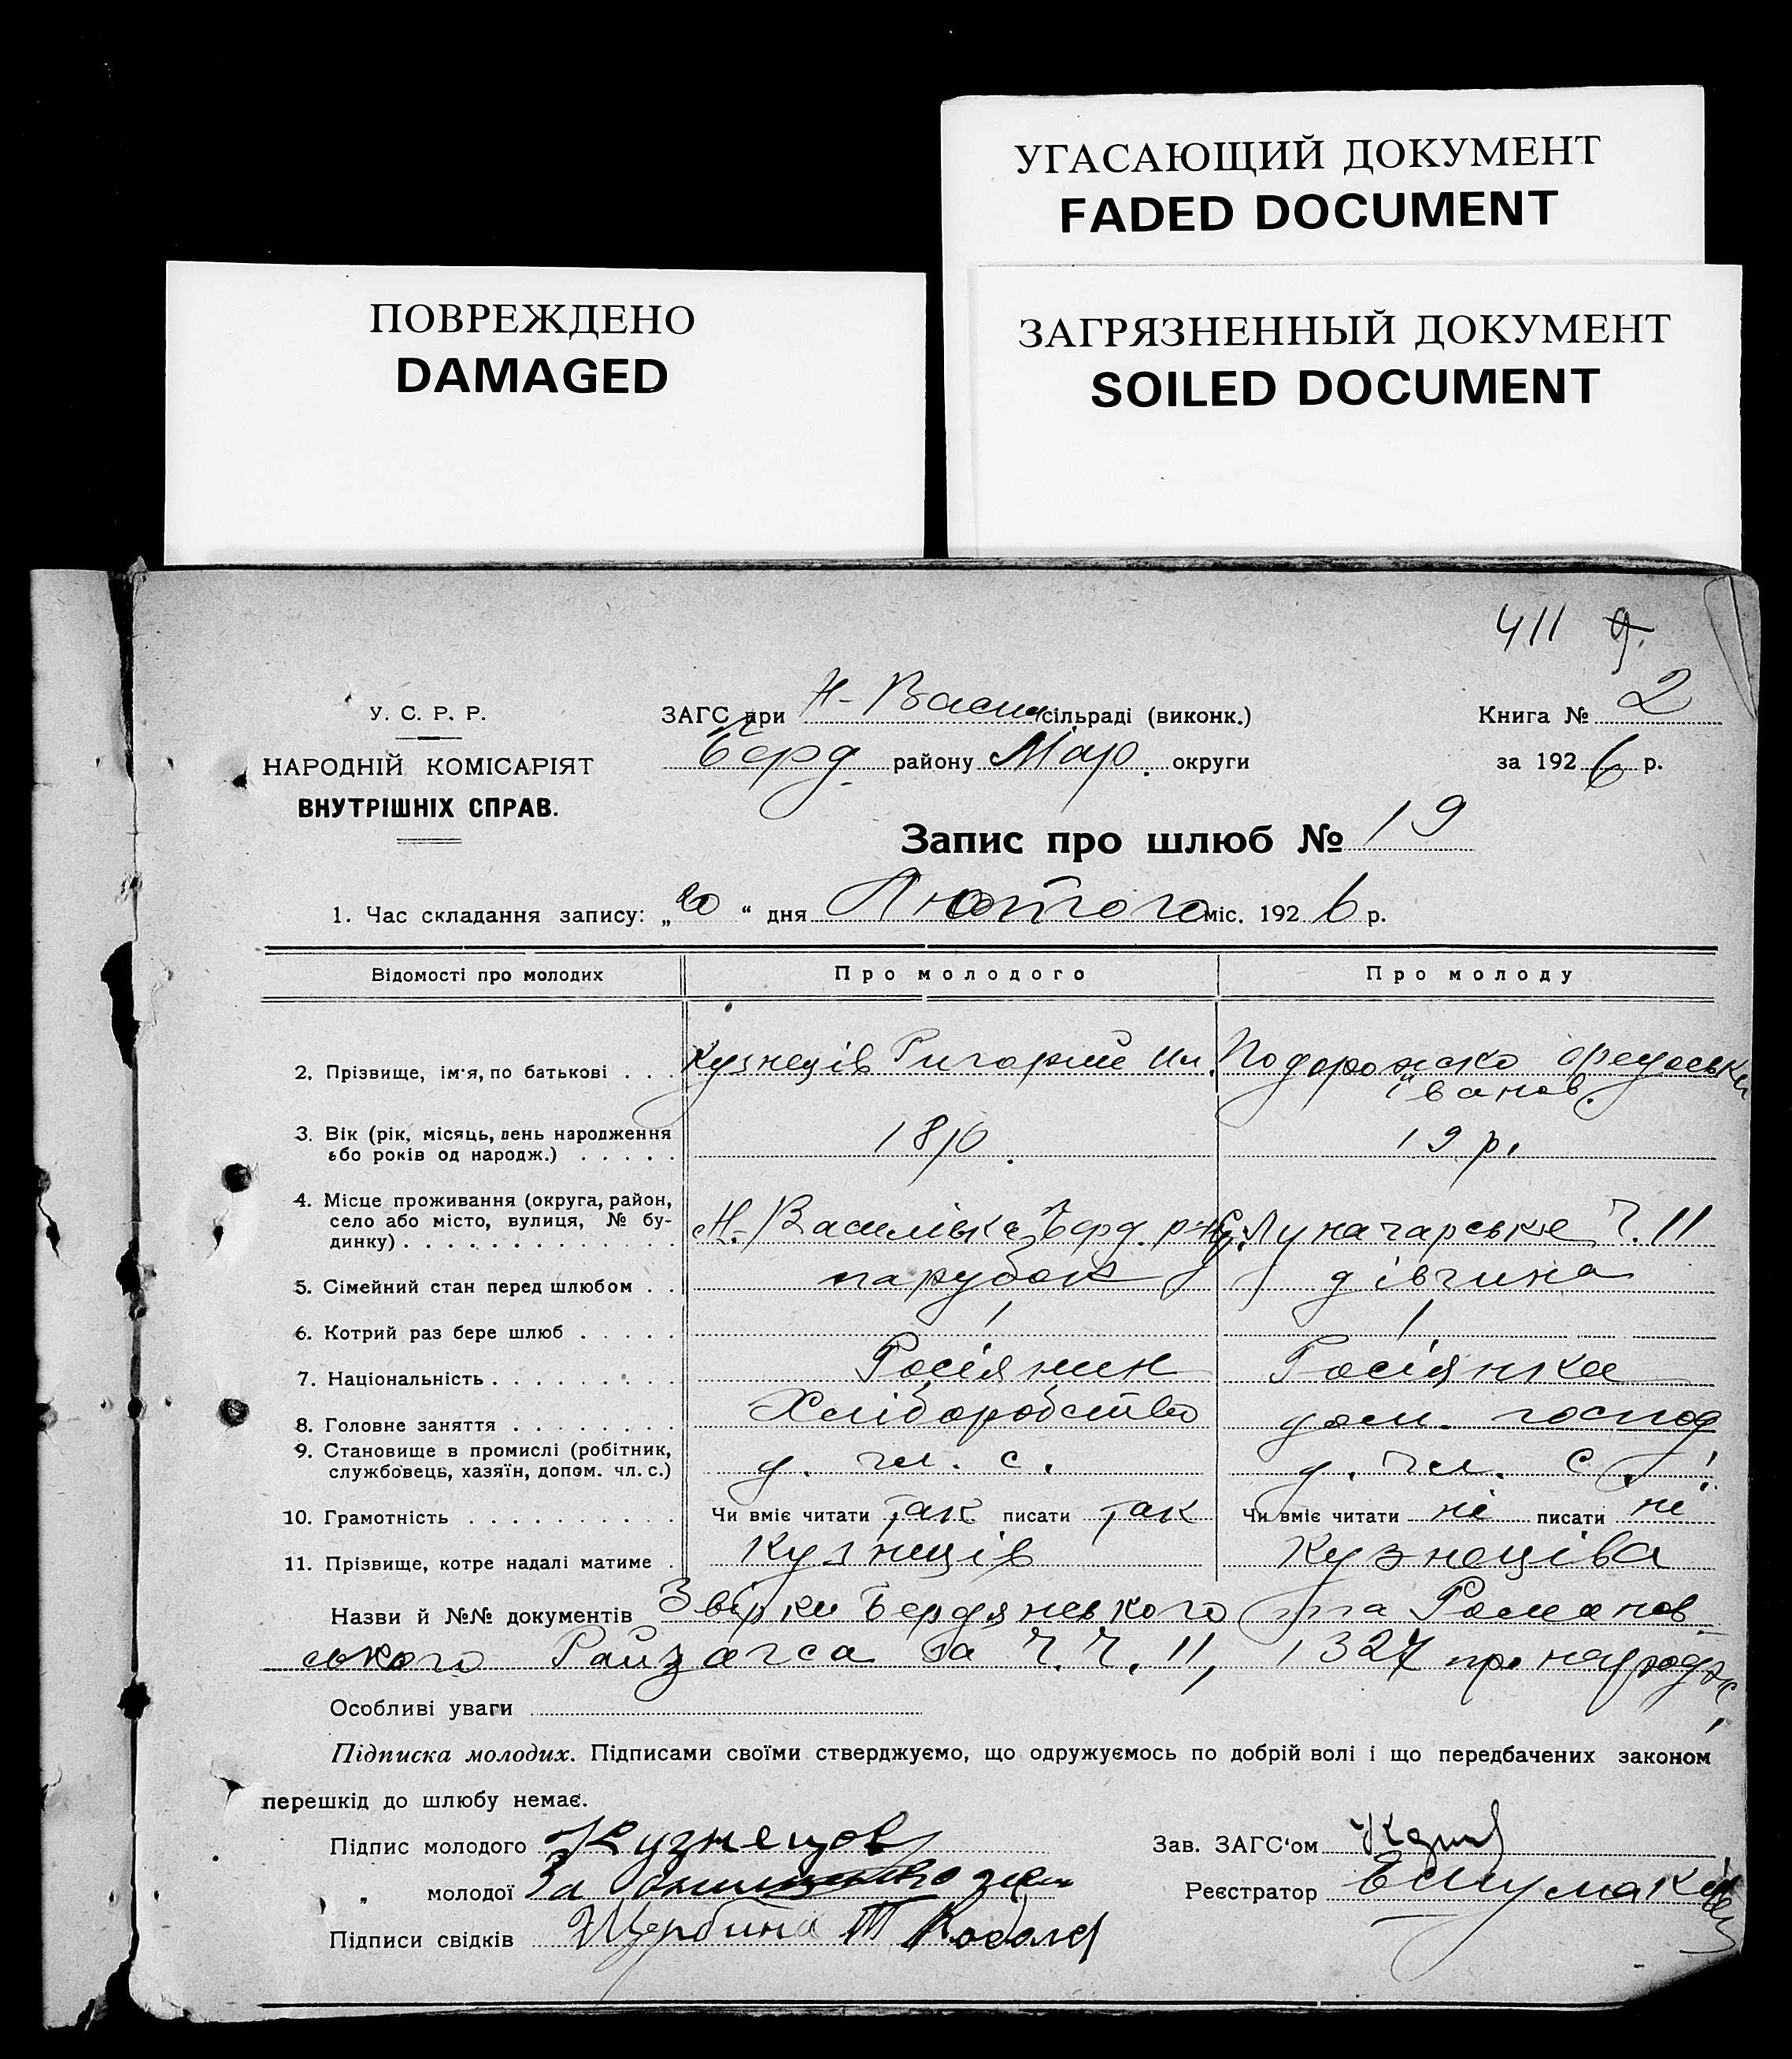 УГАСАЮЩИЙ ДОКУМЕНТ
FADED DOCUMENT
ПОВРЕЖДЕНО
DAMAGED
ЗАГРЯЗНЕННЫЙ ДОКУМЕНТ
SOILED DOCUMENT
411 9.
У. С. Р. Р.
НАРОДНІЙ КОМІСАРІЯТ
ВНУТРІШНІХ СПРАВ.
ЗАГС при Н-Васил сільраді (виконк.)
Берд. району Мар. округи
Книга № 2
за 1926 р.
Запис про шлюб № 19
1. Час складання запису: „20“ дня Лютого міс. 1926 р.
Відомості про молодих Про молодого Про молоду
2. Прізвище, ім'я, по батькові . . . Кузнеців Григорий Ил. Подорожко
Іванов.
3. Вік (рік, місяць, день народження
або років од народж.) . . . . . 19 р.
4. Місце проживання (округа, район,
село або місто, вулиця, № бу-
динку) . . . . . . . . . . . . . Н.-Василівка Берд. р-ну Луначарське Ч. 11
5. Сімейний стан перед шлюбом . . парубок дівчина
6. Котрий раз бере шлюб . . . . . 1 1
7. Національність . . . . . . . . . Росіянин Росіянка
8. Головне заняття . . . . . . . . Хліборобство дом. господ
9. Становище в промислі (робітник,
службовець, хазяїн, допом. чл. с.) д. чл. с. д. чл. с.
10. Грамотність . . . . . . . . . . Чи вміє читати так писати так Чи вміє читати ні писати ні
11. Прізвище, котре надалі матиме . Кузнеців Кузнеціва
Назви й №№ документів Звірки Бердянського та Романов
ського Райзагса за Ч.Ч. 11, 1327 про народж
Особливі уваги
Підписка молодих. Підписами своїми стверджуємо, що одружуємось по добрій волі і що передбачених законом
перешкід до шлюбу немає.
Підпис молодого Кузнецов
Зав. ЗАГС'ом
„ молодої За
Реєстратор
Підписи свідків Щербина